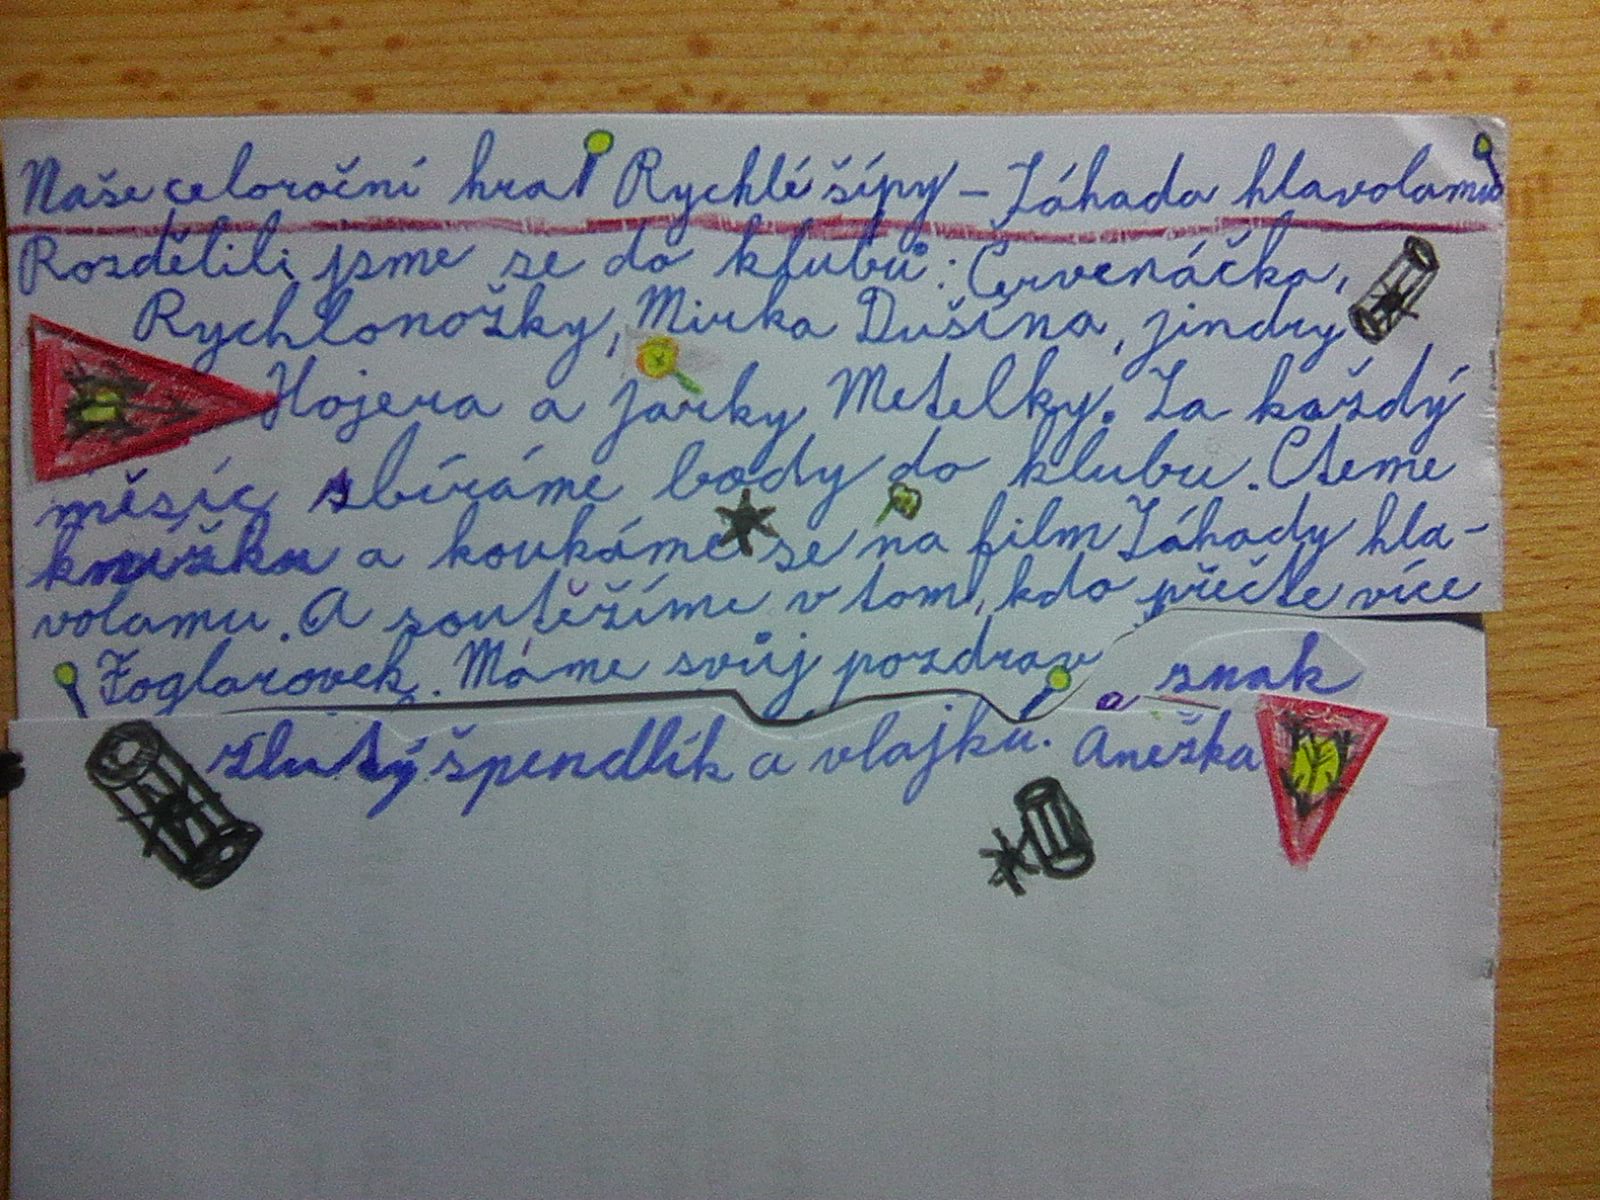 Naše celoroční hra Rychlé šípy – Záhada hlavolamu
Rozdělili jsme se do klubů: Červenáčka,
Rychlonožky, Mirka Dušína, jindry
Hojera a jarky Metelky. Za každý
měsíc sbíráme body do klubu. Čteme
knížku a koukáme se na film Záhady hla-
volamu. A soutěžíme v tom, kdo přečte více
Foglarovek. Máme svůj pozdrav a znak
žlutý špendlík a vlajku. Anežka